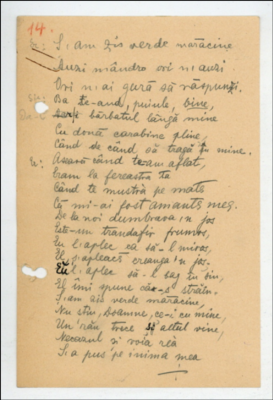 14.
Și am zis verde mărăcine
Auzi mândro ori n'auzi
Ori n-ai gură să răspunzi.
Ba te-aud, puiule, bine,
bărbatul lângă mine
Cu două carabine pline,
Când de când să tragă 'n mine.
Aseară când team aflat,
Eram la fereastra ta
Când te mustra pe mata
Că mi-ai fost amante meș.
De la noi dumbrava 'n jos
Este-un trandafir frumos,
Eu l'aplec ca să-l miros,
El își pleacă creanga 'n jos,
Eu l'aplec să-l bag în sân,
El îmi spune că-s străin.
Și am zis verde mărăcine,
Nu știu, Doamne, ce-i cu mine,
Un rău trece altul vine,
Necazul și voia rea
S'a pus pe inima mea